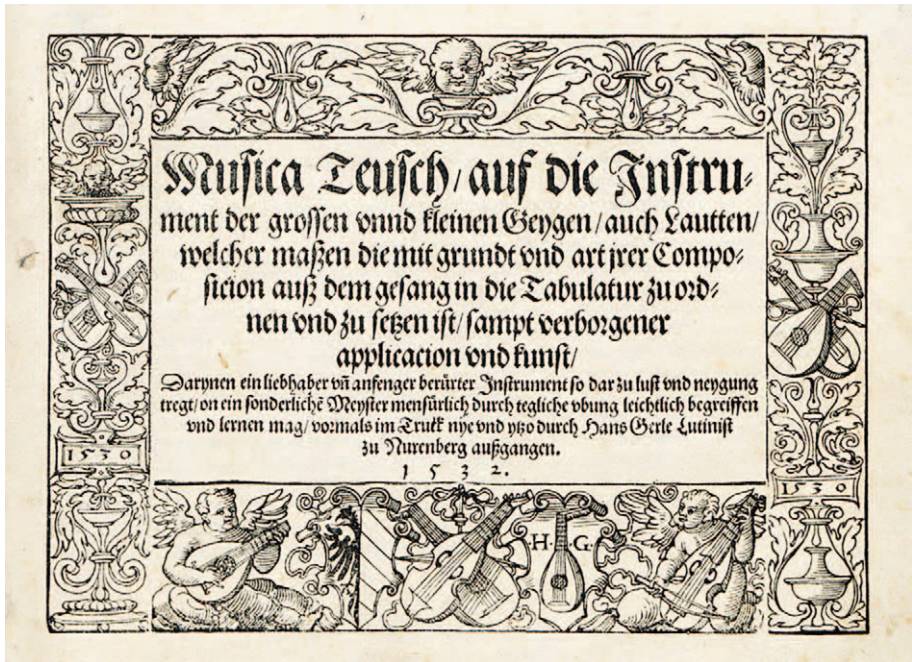 Musica Teusch/ auf die Instru-
ment der grossen vnnd kleinen Geygen/ auch Lautten/
welcher maßen die mit grundt vnd art jrer Compo-
sicion auß dem gesang in die Tabulatur zu ord-
nen vnd zu setzen ist/ sampt verborgener
applicacion vnd kunst/
Darynen ein liebhaber vn̄ anfenger berürter Instrument so dar zu lust vnd neygung
tregt/ on ein sonderlichē Meyster mensürlich durch tegliche vbung leichtlich begreiffen
vnd lernen mag/ vormals im Truck nye vnd ytzo durch Hans Gerle Lutinist
zu Nurenberg außgangen.
1532.
1530
1530
H. G.